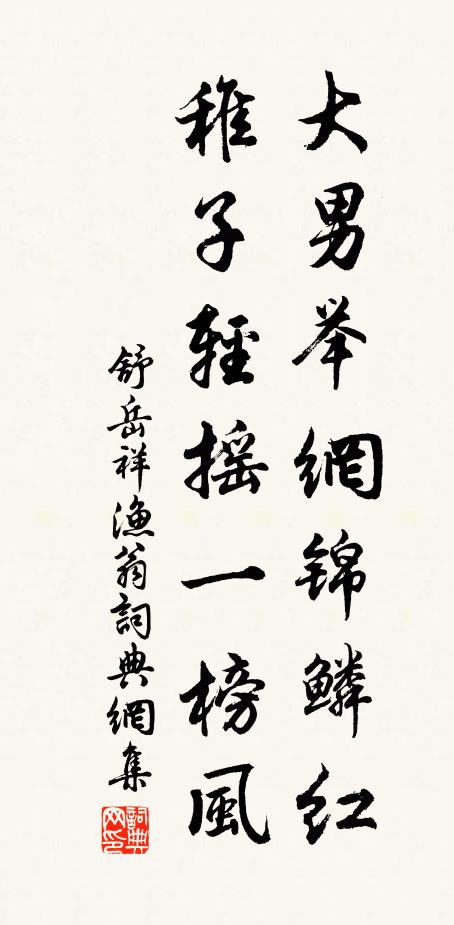 大男举網锦鳞红
稚子輕摇一榜風
舒岳祥漁翁詞典網集
詞典网印